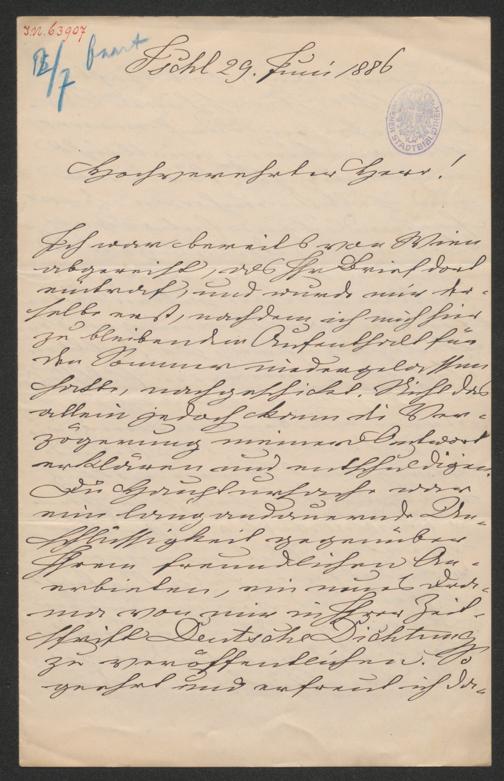 I.N. 63907
Ischl 29. Juni 1886
STADTBIBLIOTHEK
Hochverehrter Herr!
Ich war bereits von Wien
abgereist, als Ihr Brief dort
eintraf, und wurde mir der-
selbe erst, nachdem ich mich hier
zu bleibendem Aufenthalt für
den Sommer niedergelassen
hatte, nachgeschickt. Nicht das
allein jedoch kann die Ver-
zögerung meiner Antwort
erklären und entschuldigen.
Die Hauptursache war
eine lang andauernde Un-
schlüssigkeit gegenüber
Ihrem freundlichen An-
erbieten, ein neues Dra-
ma von mir in Ihrer Zeit-
schrift Deutsche Dichtung
zu veröffentlichen. So
geehrt und erfreut ich da-